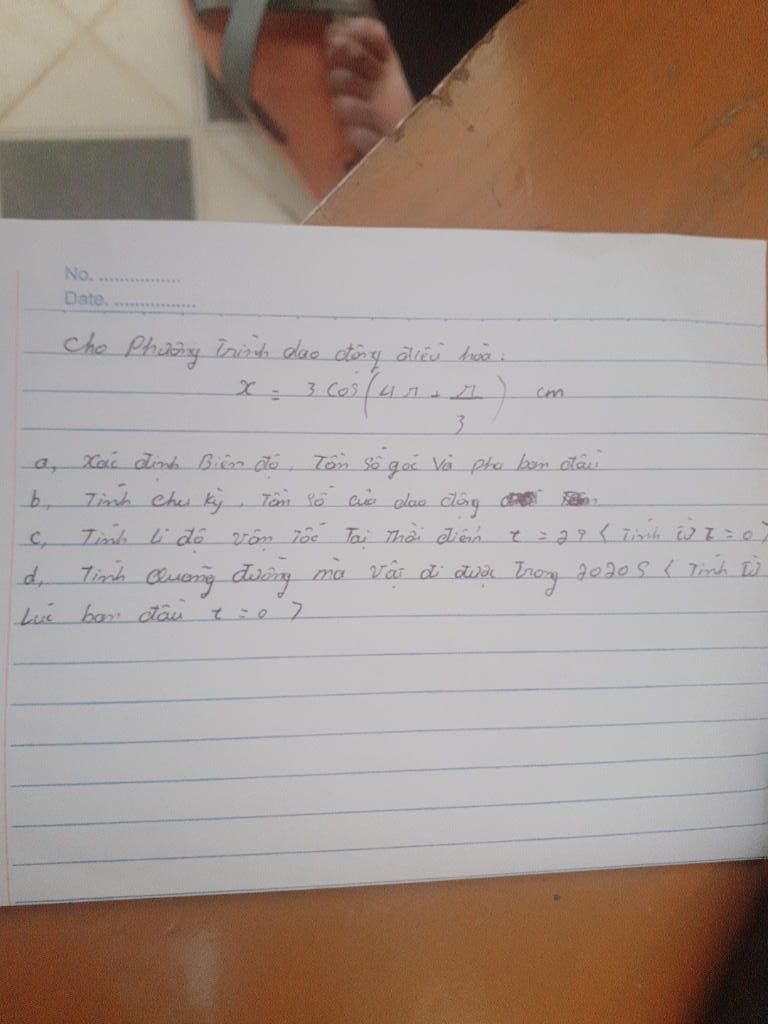 No. ................
Date. ................
Cho Phương Trình dao động điều hòa:
x = 3 cos(4π + π/3) cm
a, Xác định Biên độ, Tần số góc và pha ban đầu
b, Tính chu kỳ, Tần số của dao động
c, Tính li độ vận Tốc Tại Thời điểm t = 2? < Tính từ t = 0 >
d, Tính Quãng đường mà vật đi được Trong 2020s < Tính từ
Lúc ban đầu t = 0 >